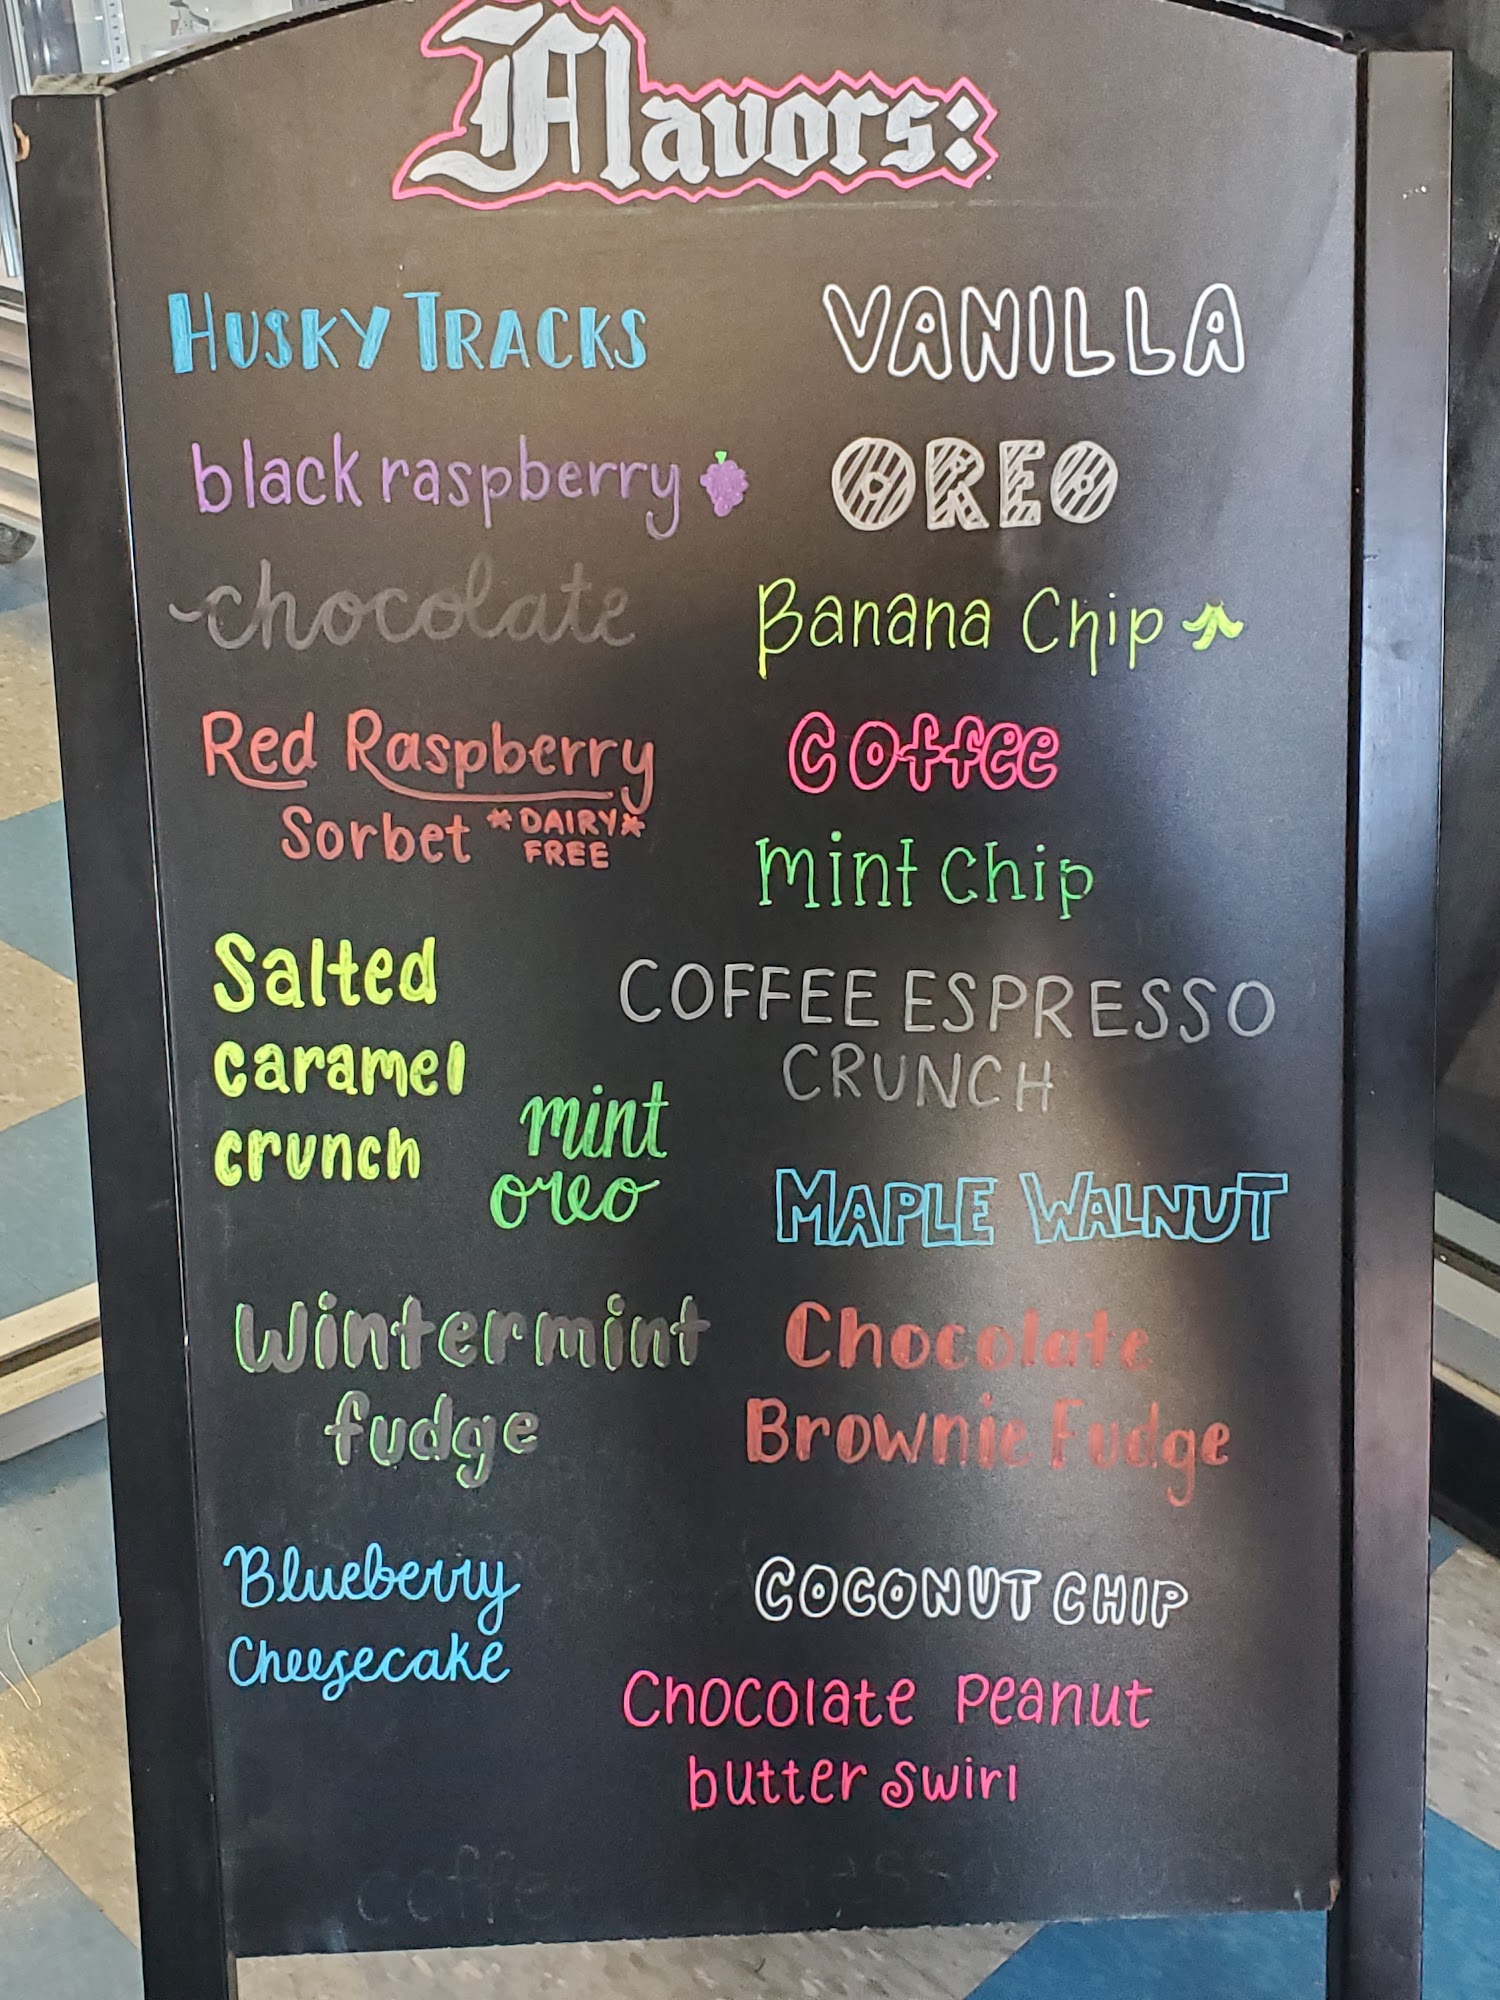 Flavors:
HUSKY TRACKS
VANILLA
black raspberry
OREO
chocolate
Banana Chip
Red Raspberry
Sorbet *DAIRY*
FREE
Coffee
Mint Chip
Salted
caramel
crunch
COFFEE ESPRESSO
CRUNCH
mint
oreo
MAPLE WALNUT
Wintermint
fudge
Chocolate
Brownie Fudge
Blueberry
Cheesecake
COCONUT CHIP
Chocolate Peanut
butter swirl